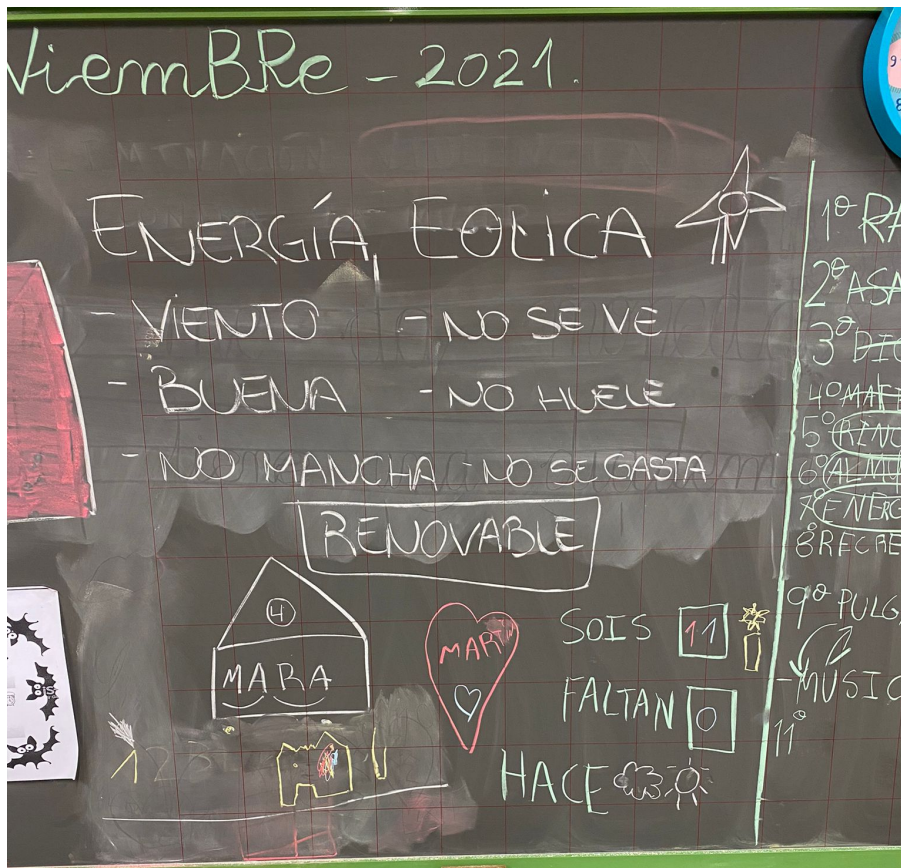 ViemBRe - 2021.
ENERGÍA EOLICA
- VIENTO - NO SE VE
- BUENA - NO HUELE
- NO MANCHA - NO SE GASTA
RENOVABLE
4
MARA
MART
SOIS 11
FALTAN 0
HACE
1 2 3
1º RA
2º ASA
3º DIC
4º
5º RINC
6º ALMU
7º ENERG
8 RECRE
9º PULG
- MÚSIC
11º
9
8